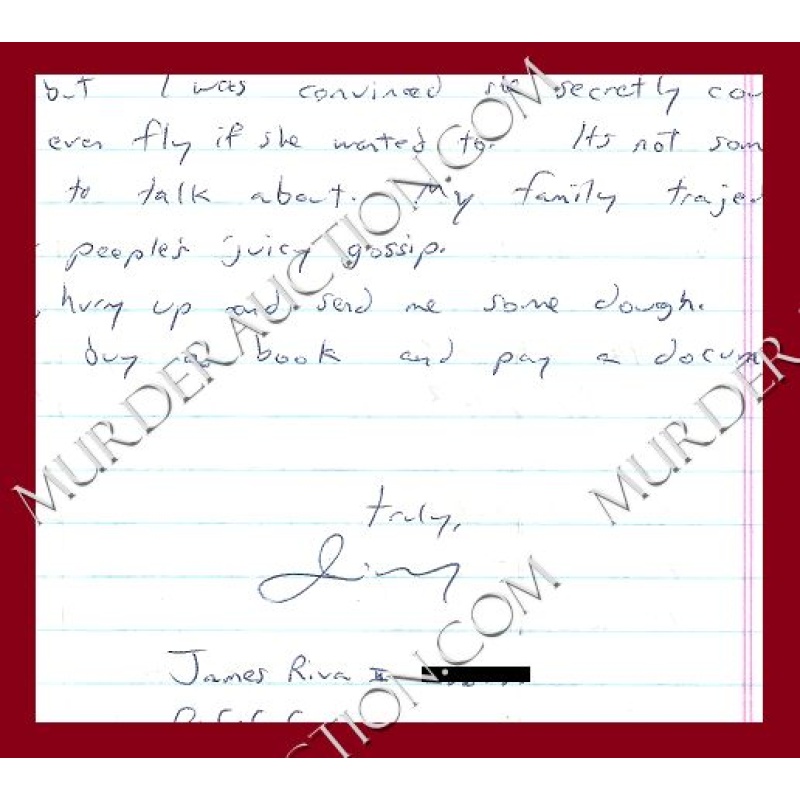 but I was convinced she secretly cou
even fly if she wanted to. Its not som
to talk about. My family trajed
peeple's juicy gossip.
, hurry up and send me some dough.
buy a book and pay a docum
truly,
Jimmy
James Riva II
MURDERAUCTION.COM
MURDERAUCTION.COM
MURDER